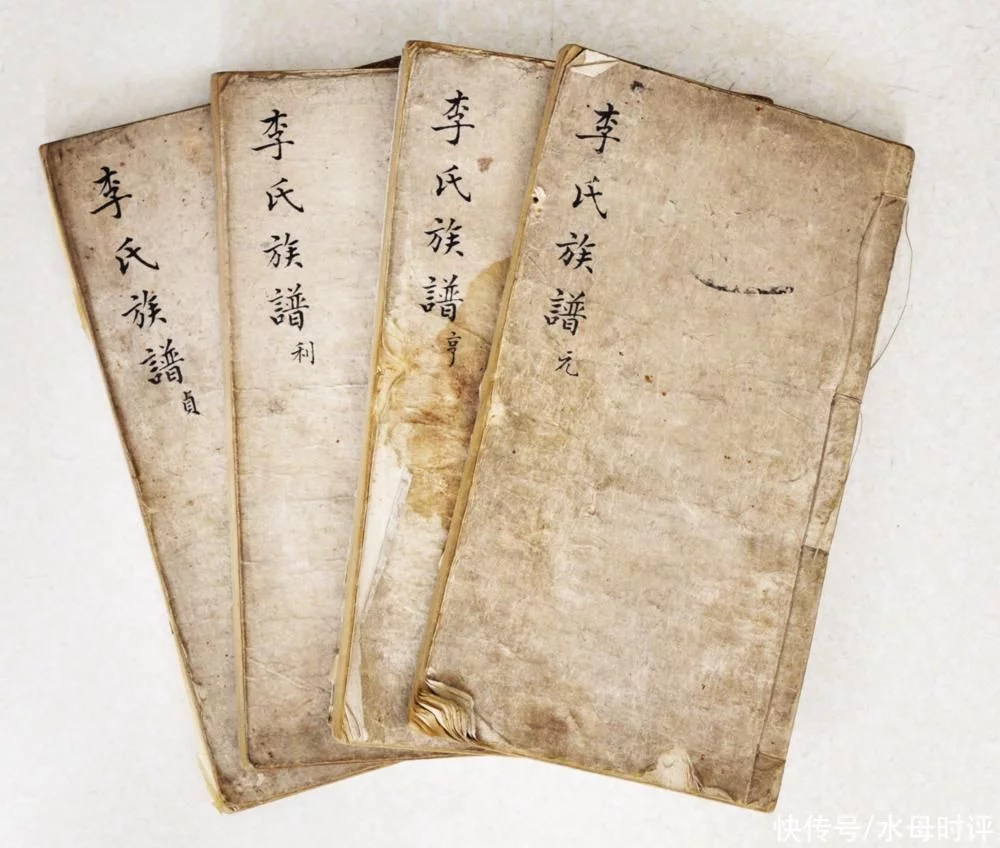 李氏族譜 元
李氏族譜 亨
李氏族譜 利
李氏族譜 貞
快传号/水母时评